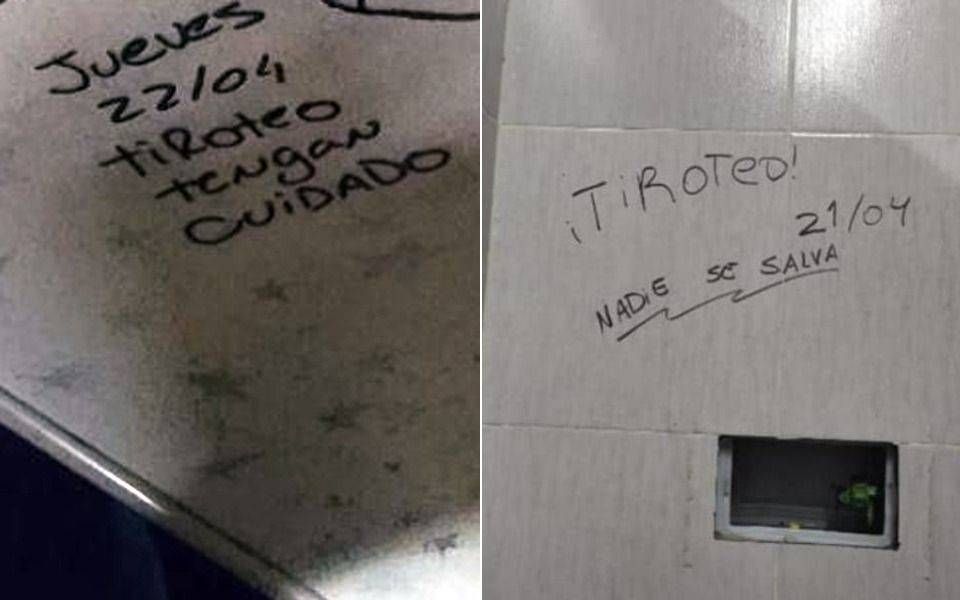 Jueves
22/04
tiRoteo
tengan
CUiDADO
¡TiROTeO!
21/04
NADiE SE SALVA